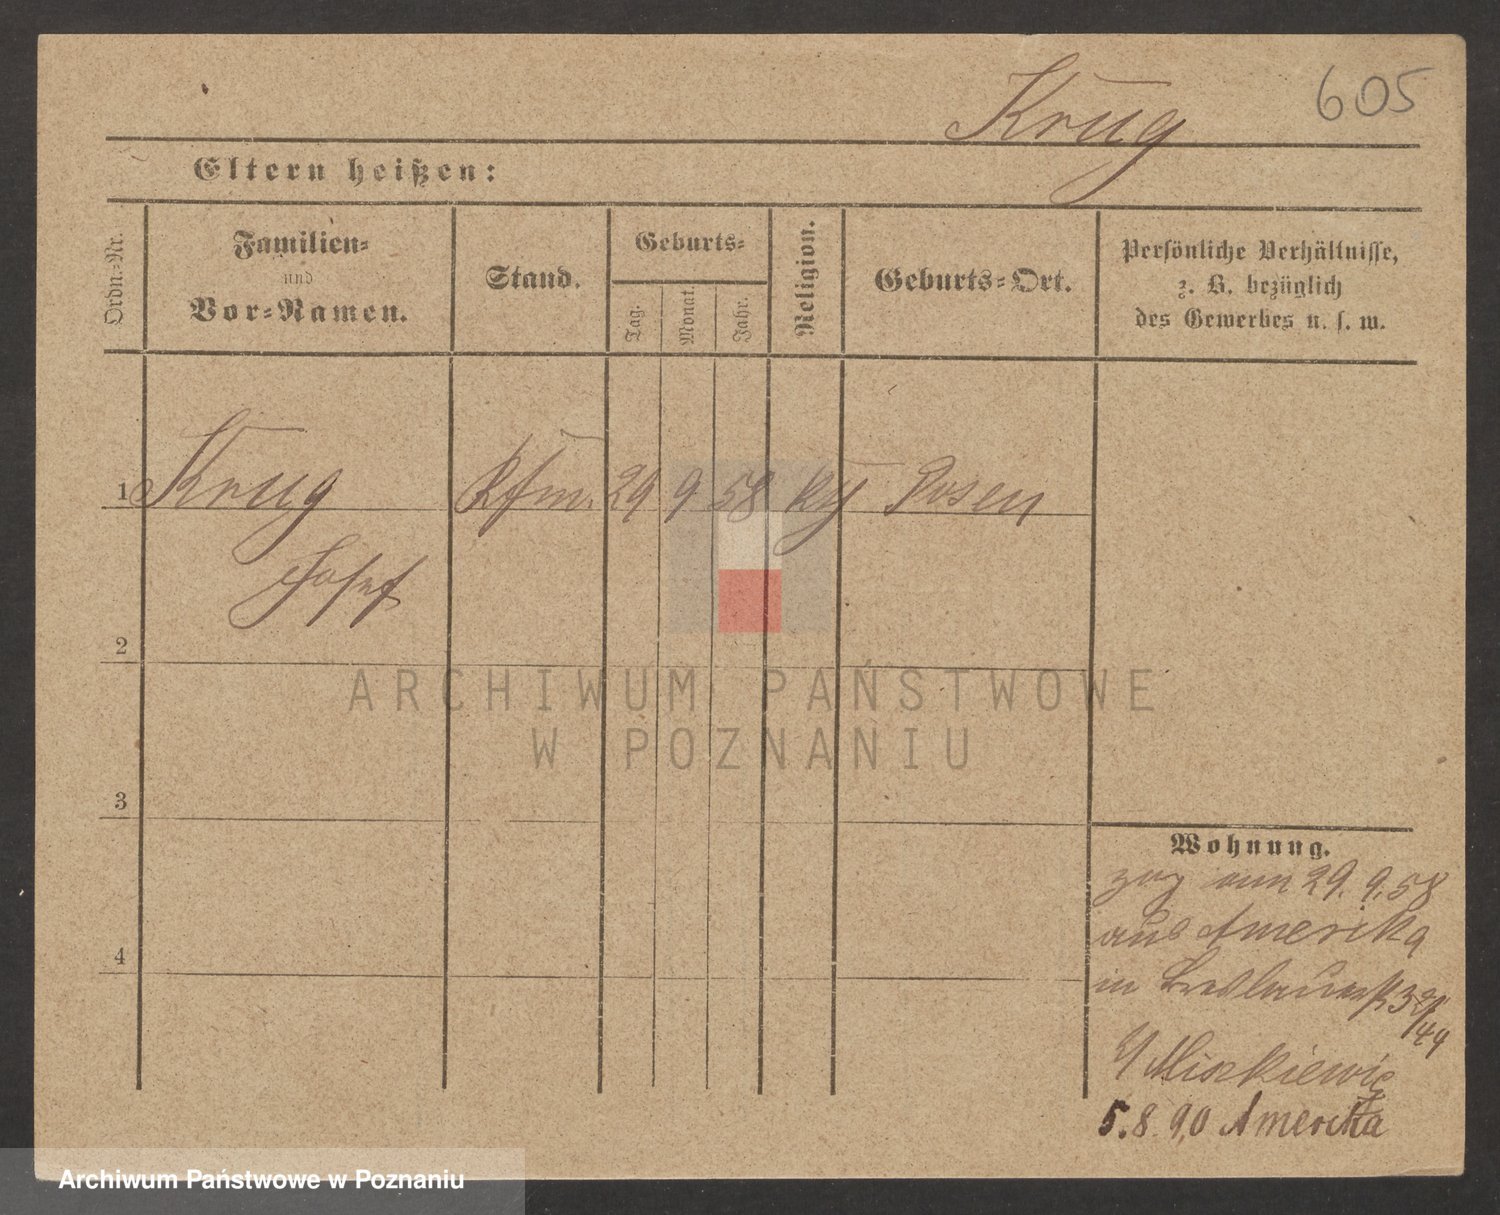 Krug
605
Eltern heißen:
Ordn=Nr.
Familien=
und
Vor=Namen.
Stand.
Geburts=
Tag.
Monat.
Jahr.
Religion.
Geburts=Ort.
Persönliche Verhältnisse,
z. B. bezüglich
des Gewerbes u. s. w.
1 Krug Kfm. 29 9 58 Posen
Josef
2
3
4
Wohnung.
zog am 29. 9. 58
aus Amerika
in
Miskiewicz
5. 8. 90 Amerika
ARCHIWUM PAŃSTWOWE
W POZNANIU
Archiwum Państwowe w Poznaniu